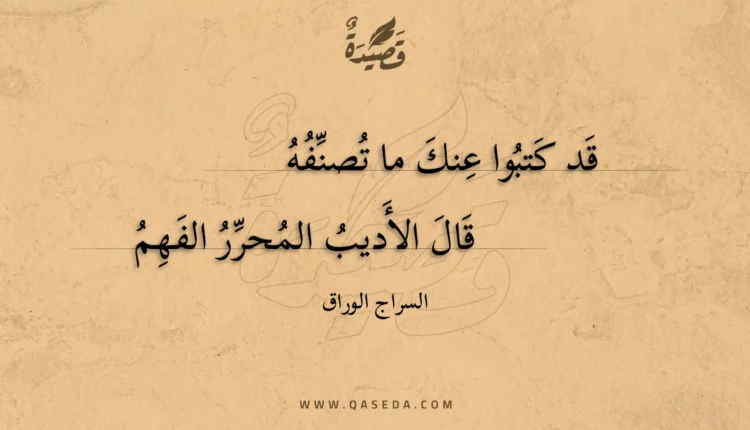 قَصِيْدَةٌ
قَد كَتبُوا عِنكَ ما تُصنِّفُهُ
قَالَ الأَديبُ المُحرِّرُ الفَهِمُ
السراج الوراق
WWW.QASEDA.COM